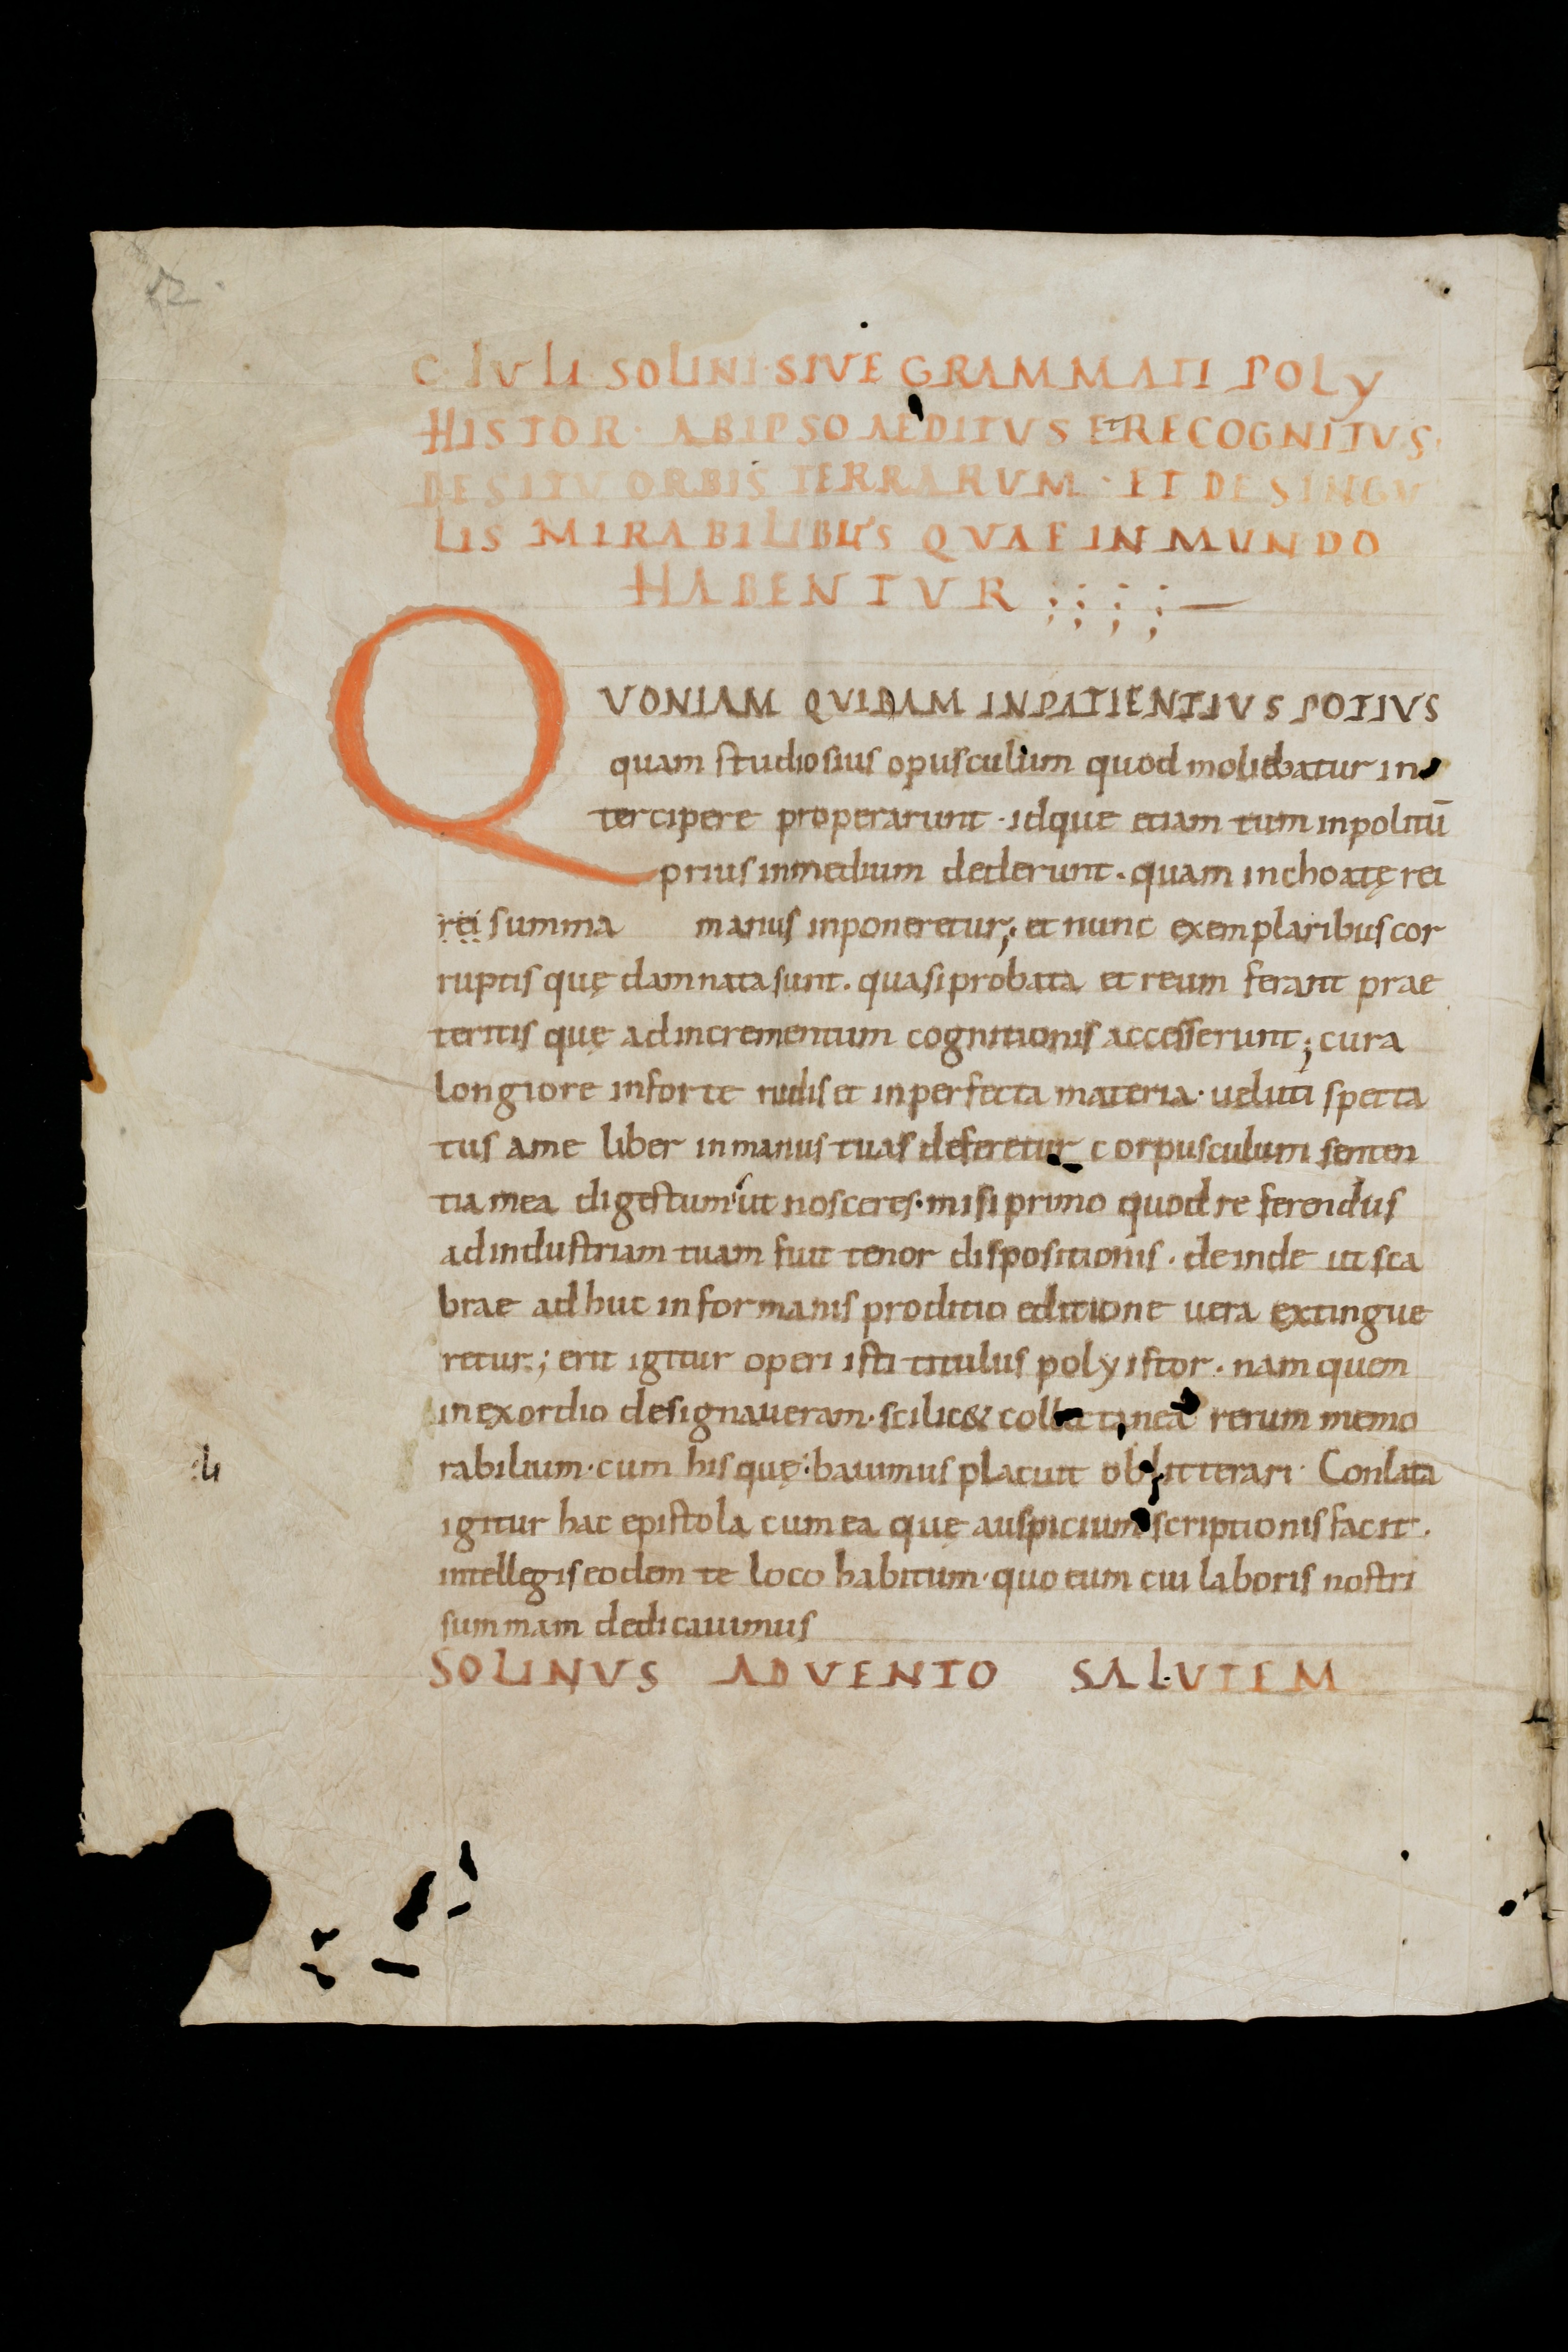 C IVLI SOLINI SIVE GRAMMATI POLY
HISTOR · AB IPSO AEDITVS ET RECOGNITVS·
DE SITV ORBIS TERRARVM · ET DE SINGV
LIS MIRABILIBUS QVAE IN MUNDO
HABENTVR ;;;;—
QVONIAM QVIDAM INPATIENTIVS POTIVS
quam studiosius opusculum quod moliebatur in
tercipere properarunt · idque etiam tum inpolitū
prius inmedium dederunt · quam inchoatę rei
rei summa manus inponeretur; et nunc exemplaribus cor
ruptis quę damnata sunt · quasi probata et reum ferant prae
teritis quę ad incrementum cognitionis accesserunt; cura
longiore inforte rudis et inperfecta materia · veluti specta
tus ame liber inmanus tuas deferetur corpusculum senten
tia mea digestum ut nosceres · misi primo quod referendus
ad industriam tuam fuit tenor dispositionis · deinde ut sca
brae adhuc informanis proditio editione vera extingue
retur; erit igitur operi isti titulus polyistor · nam quem
in exordio designaveram · scilic& collectanea rerum memo
rabilium · cum his quę:bavimus placuit oblitterari · Conlata
:li
igitur hac epistola cum ea quę auspicium scriptionis facit ·
intellegis eodem te loco habitum · quo eum cui laboris nostri
summam dedicavimus
SOLINVS ADVENTO SALVTEM